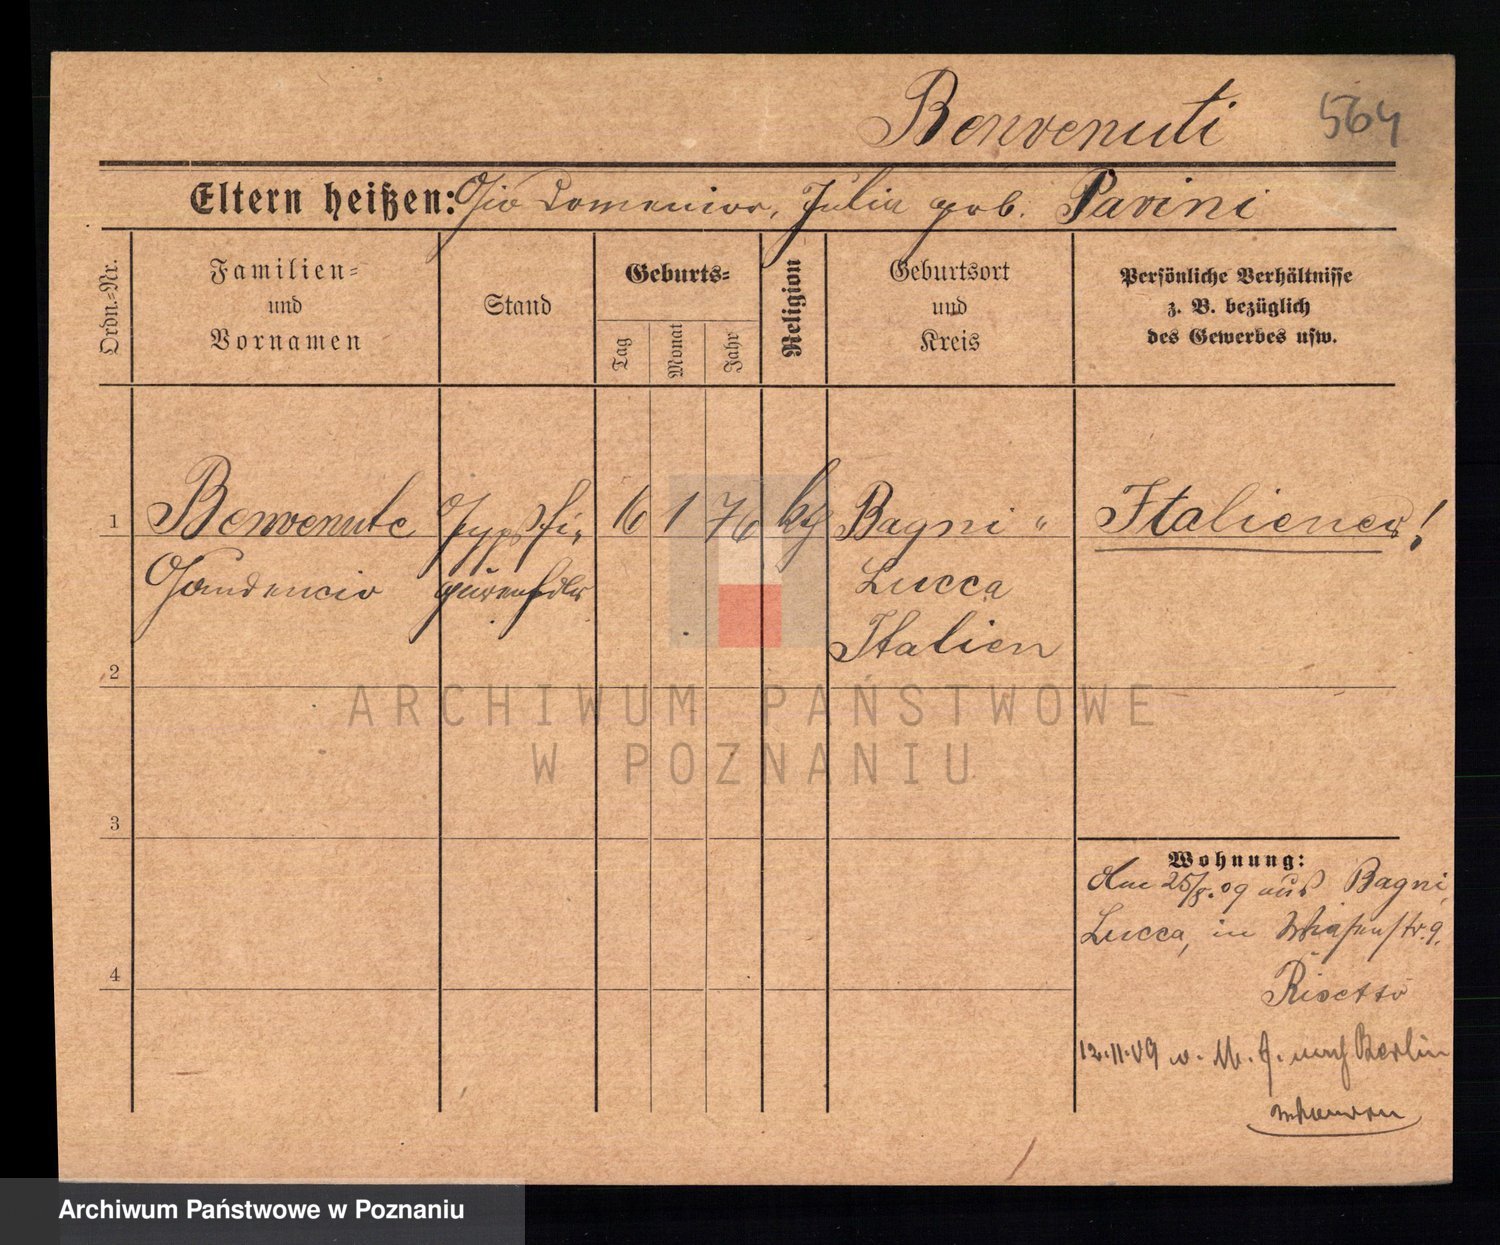 Benvenuti 564
Eltern heißen: Gio Domenico, Julia geb. Pavini
Ordn.-Nr.
Familien-
und
Vornamen
Stand
Geburts-
Tag
Monat
Jahr
Religion
Geburtsort
und
Kreis
Persönliche Verhältnisse
z. B. bezüglich
des Gewerbes usw.
1 Benvenute Gypsfi- 16 1 76 kg Bagni " Italiener!
Gaudencio gürenhdlr Lucca
Italien
2
ARCHIWUM PAŃSTWOWE
W POZNANIU
3
Wohnung:
Am 25/8.09 aus Bagni
Lucca, in str. 9.
4
Risetto
12.11.09 nach Berlin
Archiwum Państwowe w Poznaniu